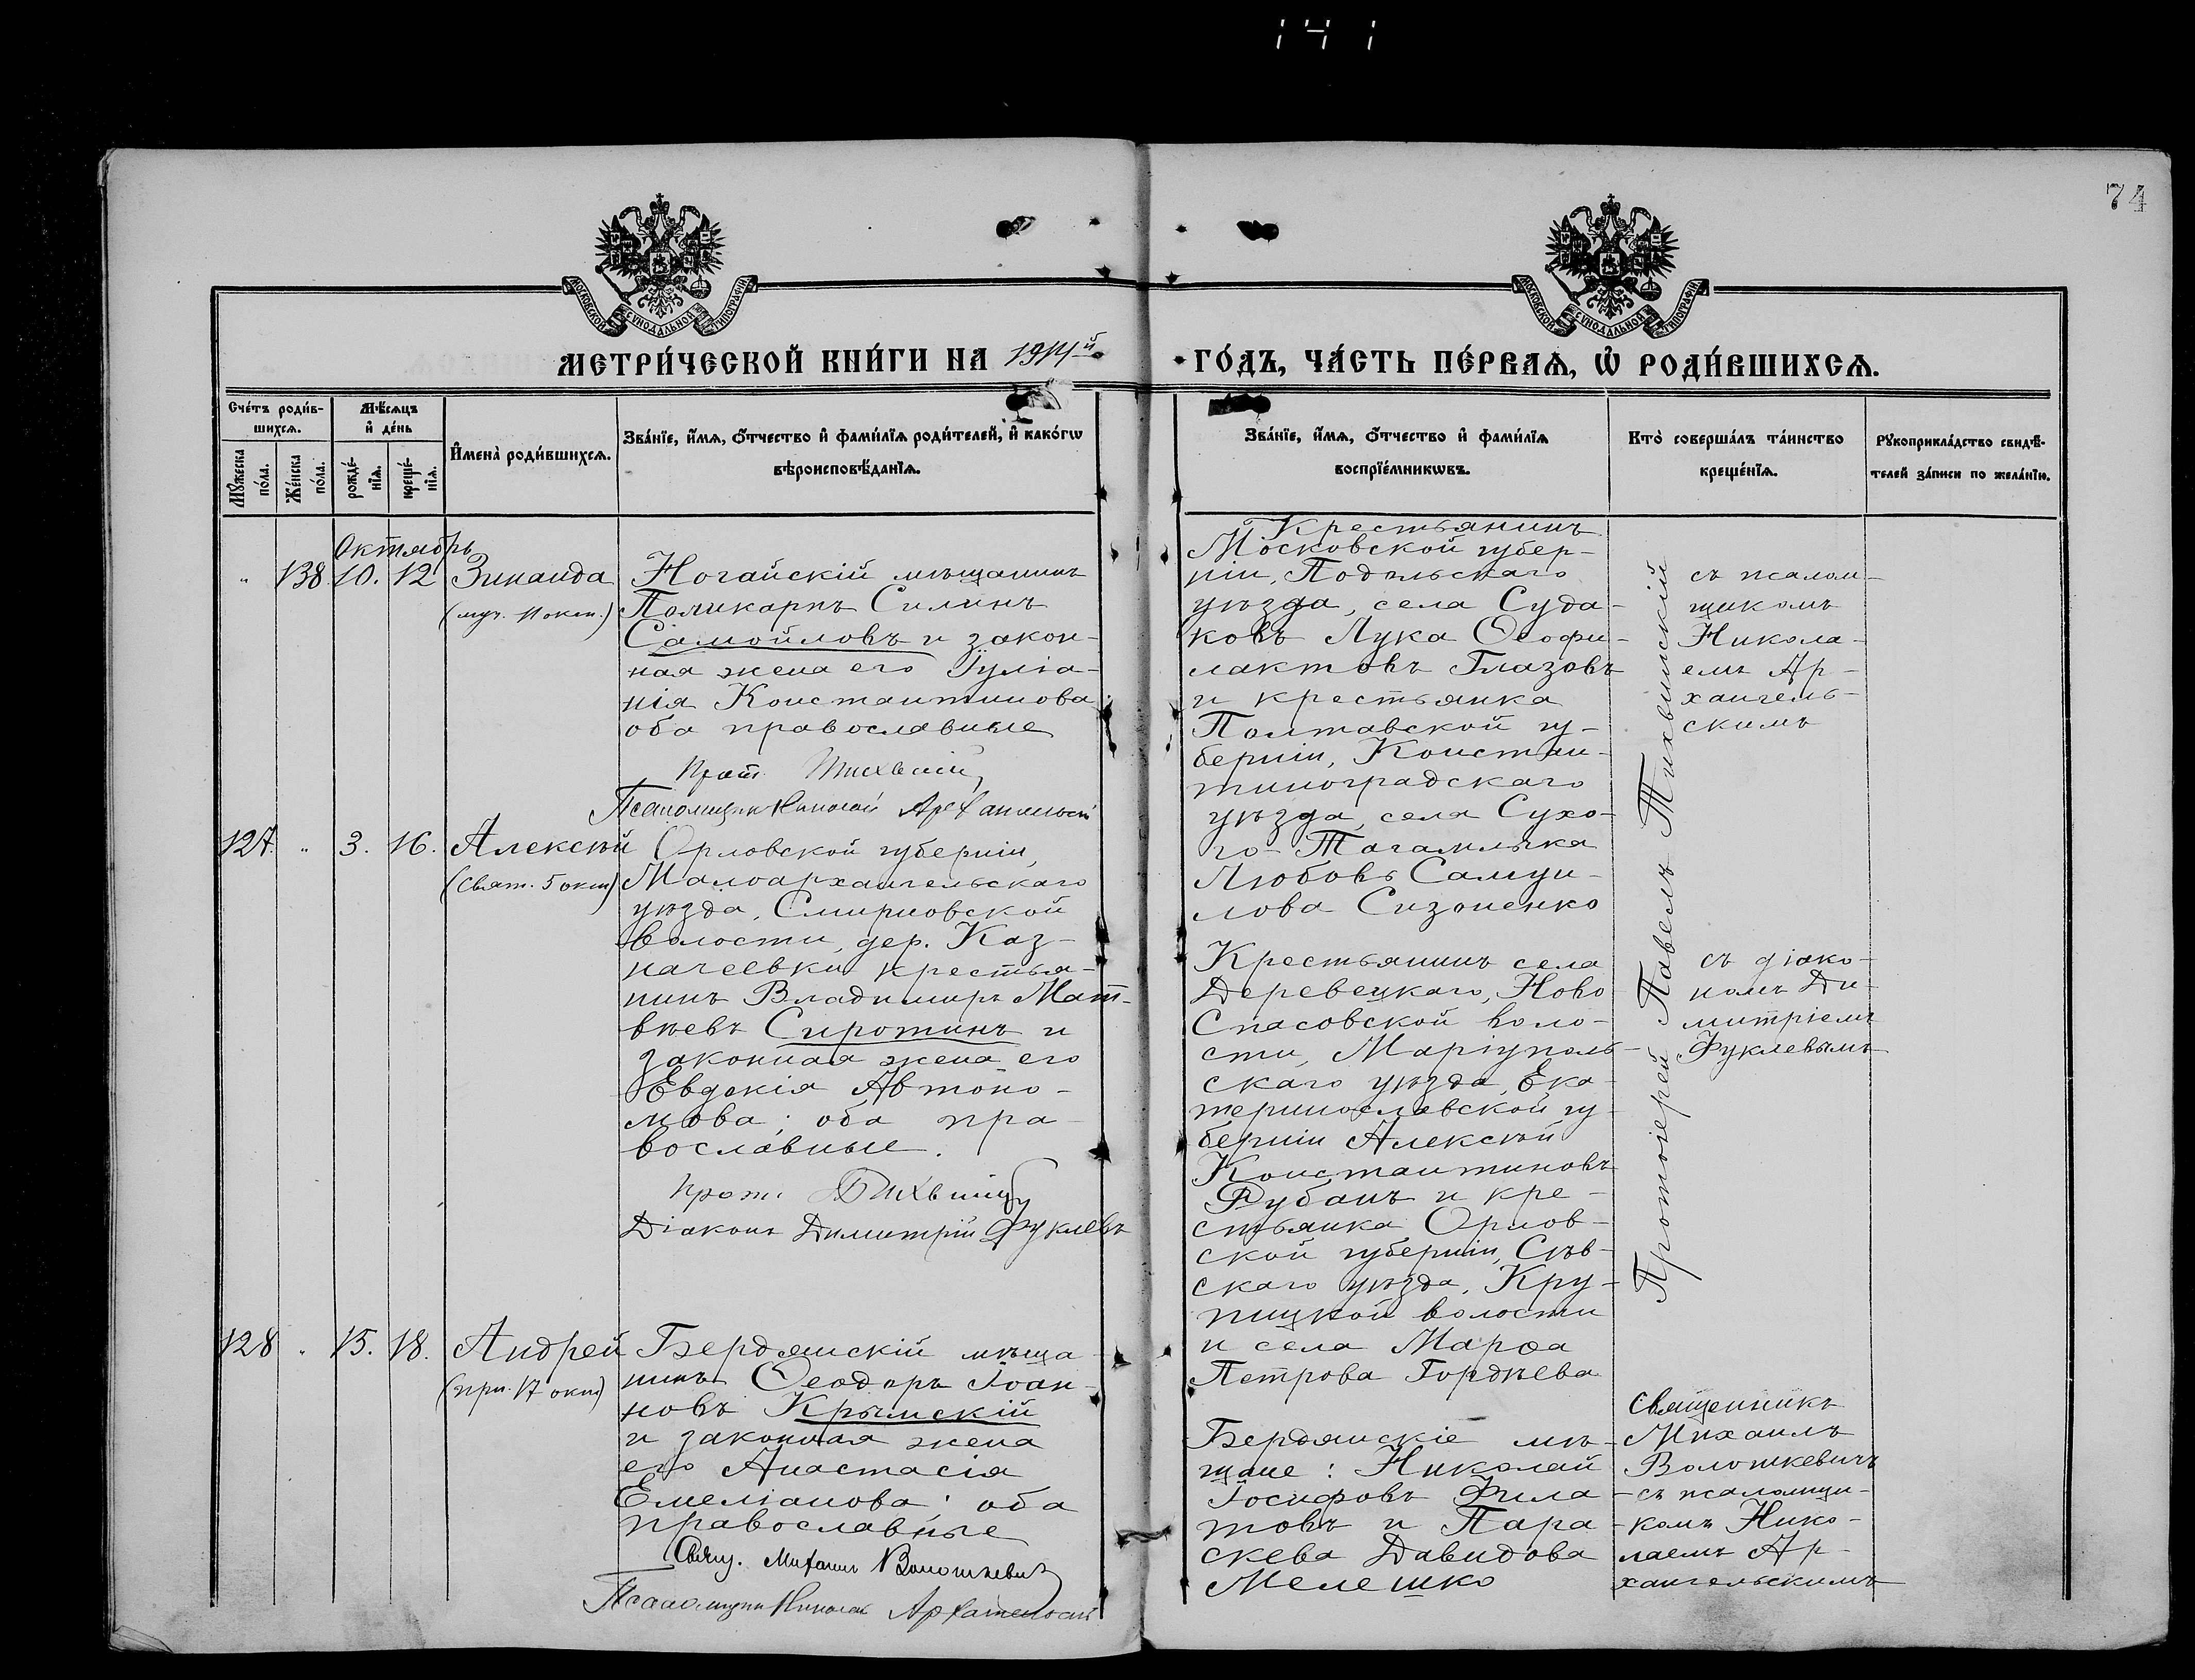 141
74
МОСКОВСКОЙ СѴНОДАЛЬНОЙ ТИПОГРАФІИ
МОСКОВСКОЙ СѴНОДАЛЬНОЙ ТИПОГРАФІИ
МЕТРИ́ЧЕСКОЙ КНИ́ГИ НА 1914й
ГО́ДЪ, ЧА́СТЬ ПЕ́РВАѦ, Ѡ҆ РОДИ́ВШИХСѦ.
Сче́тъ роди́в-
шихсѧ.
Мѣ́сѧцъ
и҆ де́нь
Мꙋ́жеска по́ла.
Же́нска по́ла.
рожде́-
нїѧ.
креще́-
нїѧ.
И҆мена̀ роди́вшихсѧ.
Зва́нїе, и҆́мѧ, ѻ҆́тчество и҆ фами́лїѧ роди́телей, и҆ како́гѡ
вѣроисповѣ́данїѧ.
Зва́нїе, и҆́мѧ, ѻ҆́тчество и҆ фами́лїѧ
воспрїе́мникѡвъ.
Кто̀ соверша́лъ та́инство
креще́нїѧ.
Рꙋкоприкла́дство свидѣ́-
телей за́писи по жела́нїю.
Октябрь
" 138 10. 12 Зинаида
(муч. 11 окт.)
Ногайскій мѣщанинъ
Поликарпъ Силинъ
Самойловъ и закон-
ная жена его Іуліа-
нія Константинова
оба православные
Прот. Тихвинскій
Псаломщикъ Николай Архангельскій
Крестьянинъ
Московской губер-
ніи, Подольскаго
уѣзда, села Суда-
ковъ Лука Ѳеофи-
лактовъ Глазовъ
и крестьянка
Полтавской гу-
берніи, Констан-
тиноградскаго
уѣзда, села Сухо-
го-Тагамлыка
Любовь Самуи-
лова Сизоненко
Протоіерей Павелъ Тихвинскій
съ псалом-
щикомъ
Никола-
емъ Ар-
хангель-
скимъ
127. " 3. 16. Алексѣй
(свят. 5 окт)
Орловской губерніи,
Малоархангельскаго
уѣзда, Смирновской
волости, дер. Каз-
начеевки крестья-
нинъ Владимиръ Мат-
вѣевъ Сиротинъ и
законная жена его
Евдокія Автоно-
мова; оба пра-
вославные.
Прот. Тихвинскій
Діаконъ Димитрій Фуклевъ
Крестьянинъ села
Деревецкаго, Ново
Спасовской воло-
сти, Маріуполь-
скаго уѣзда, Ека-
теринославской гу-
берніи Алексѣй
Константиновъ
Рубанъ и кре-
стьянка Орлов-
ской губерніи, Сѣв-
скаго уѣзда, Кру-
пицкой волости
и села Марѳа
Петрова Гордѣева
съ діако-
номъ Ди-
митріемъ
Фуклевымъ
128 " 15. 18. Андрей
(прп. 17 окт)
Бердянскій мѣща
нинъ Ѳеодоръ Іоан-
новъ Крымскій
и законная жена
его Анастасія
Емеліанова; оба
православные
Свящ. Михаилъ Волошкевичъ
Псаломщикъ Николай Архангельскій
Бердянскіе мѣ-
щане: Николай
Іосифовъ Фила
товъ и Пара
скева Давидова
Мелешко
Священникъ
Михаилъ
Волошкевичъ
съ псаломщи-
комъ Нико-
лаемъ Ар-
хангельскимъ